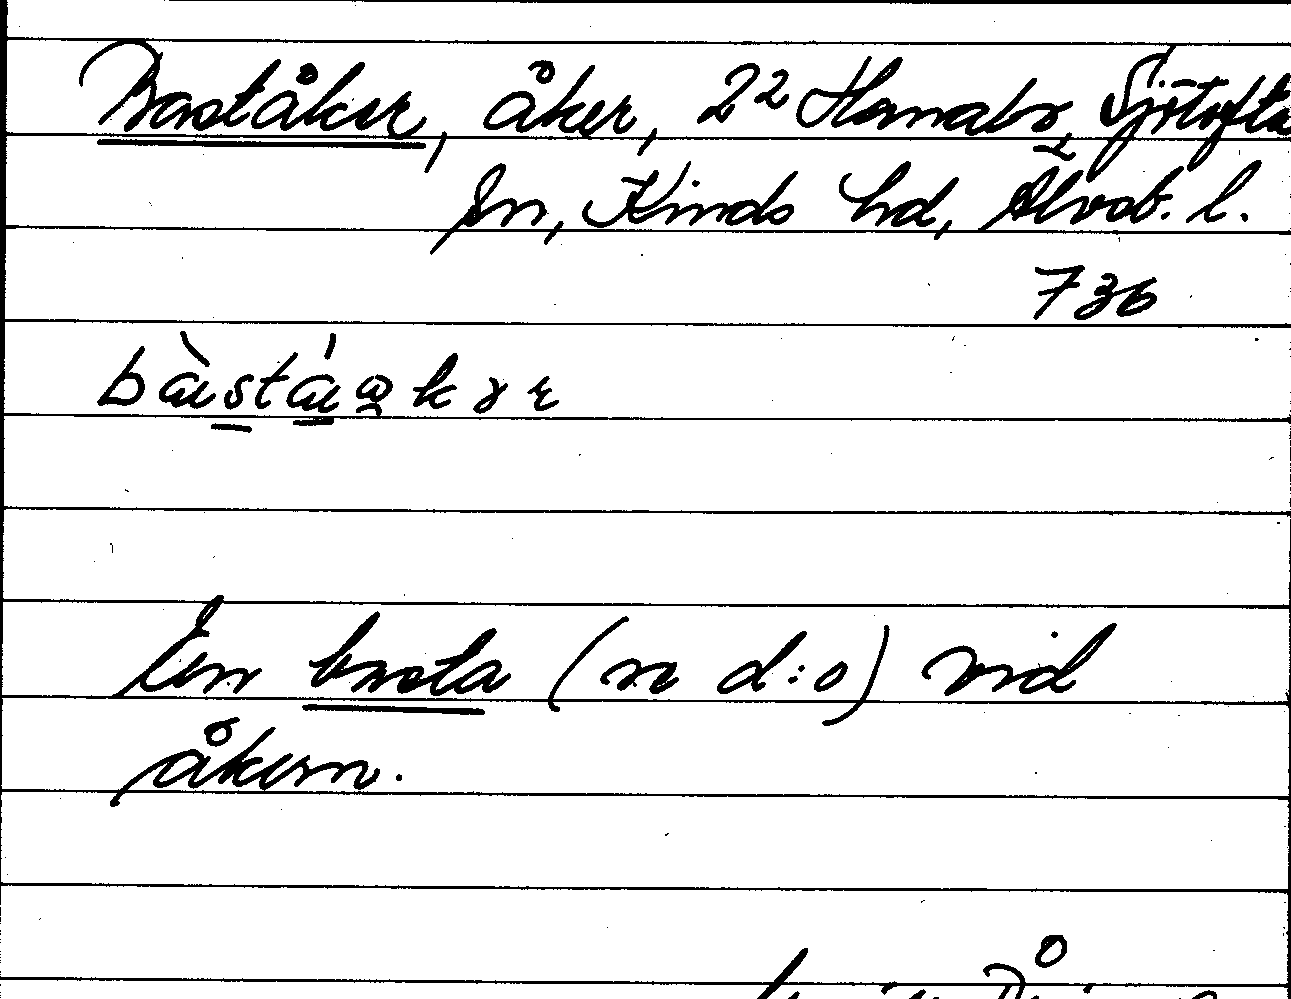 Baståker, åker, 2² Hemabr, Sjötofta
sn, Kinds hd, Älvsb. l.
736
En basta (n d:o) vid
åkern.